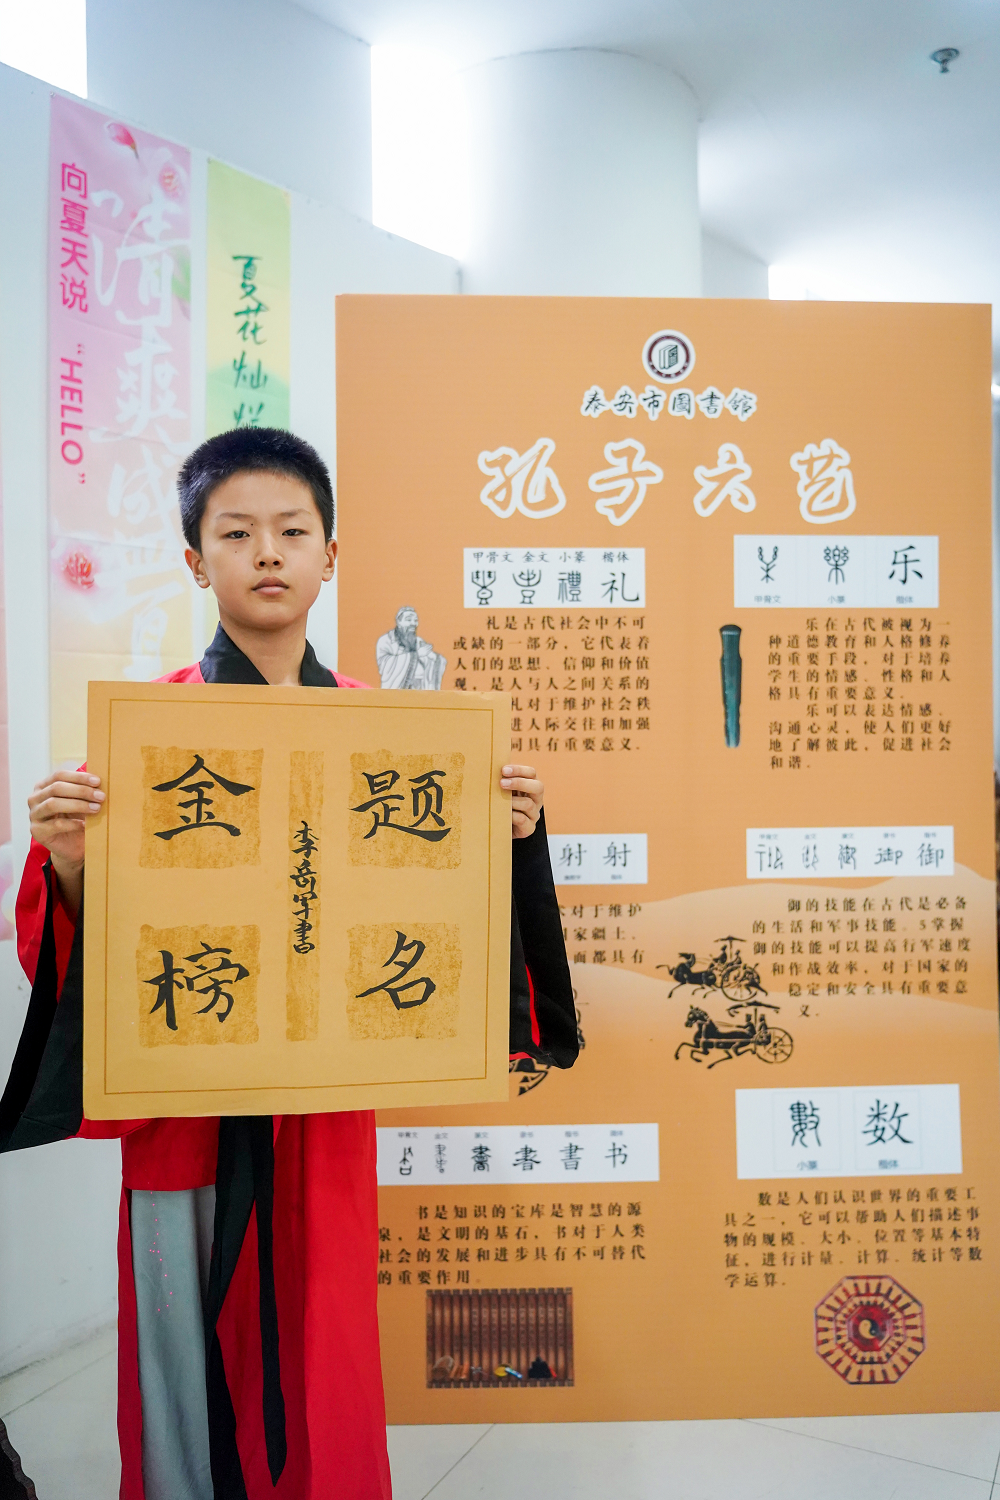 向夏天说“HELLO”
清爽盛夏
夏花灿烂
泰安市图書館
孔子六艺
甲骨文 金文 小篆 楷体
禮 礼
礼是古代社会中不可
或缺的一部分，它代表着
人们的思想、信仰和价值
观，是人与人之间关系的
礼对于维护社会秩
进人际交往和加强
同具有重要意义。
樂 乐
甲骨文 小篆 楷体
乐在古代被视为一
种道德教育和人格修养
的重要手段，对于培养
学生的情感、性格和人
格具有重要意义。
乐可以表达情感、
沟通心灵，使人们更好
地了解彼此，促进社会
和谐。
射 射
术对于维护
国家疆土、
面都具有
御 御
御的技能在古代是必备
的生活和军事技能。5掌握
御的技能可以提高行军速度
和作战效率，对于国家的
稳定和安全具有重要意
义。
書 书
书是知识的宝库是智慧的源
泉，是文明的基石，书对于人类
社会的发展和进步具有不可替代
的重要作用。
數 数
小篆 楷体
数是人们认识世界的重要工
具之一，它可以帮助人们描述事
物的规模、大小、位置等基本特
征，进行计量、计算、统计等数
学运算。
金 题
榜 名
李岳罕書